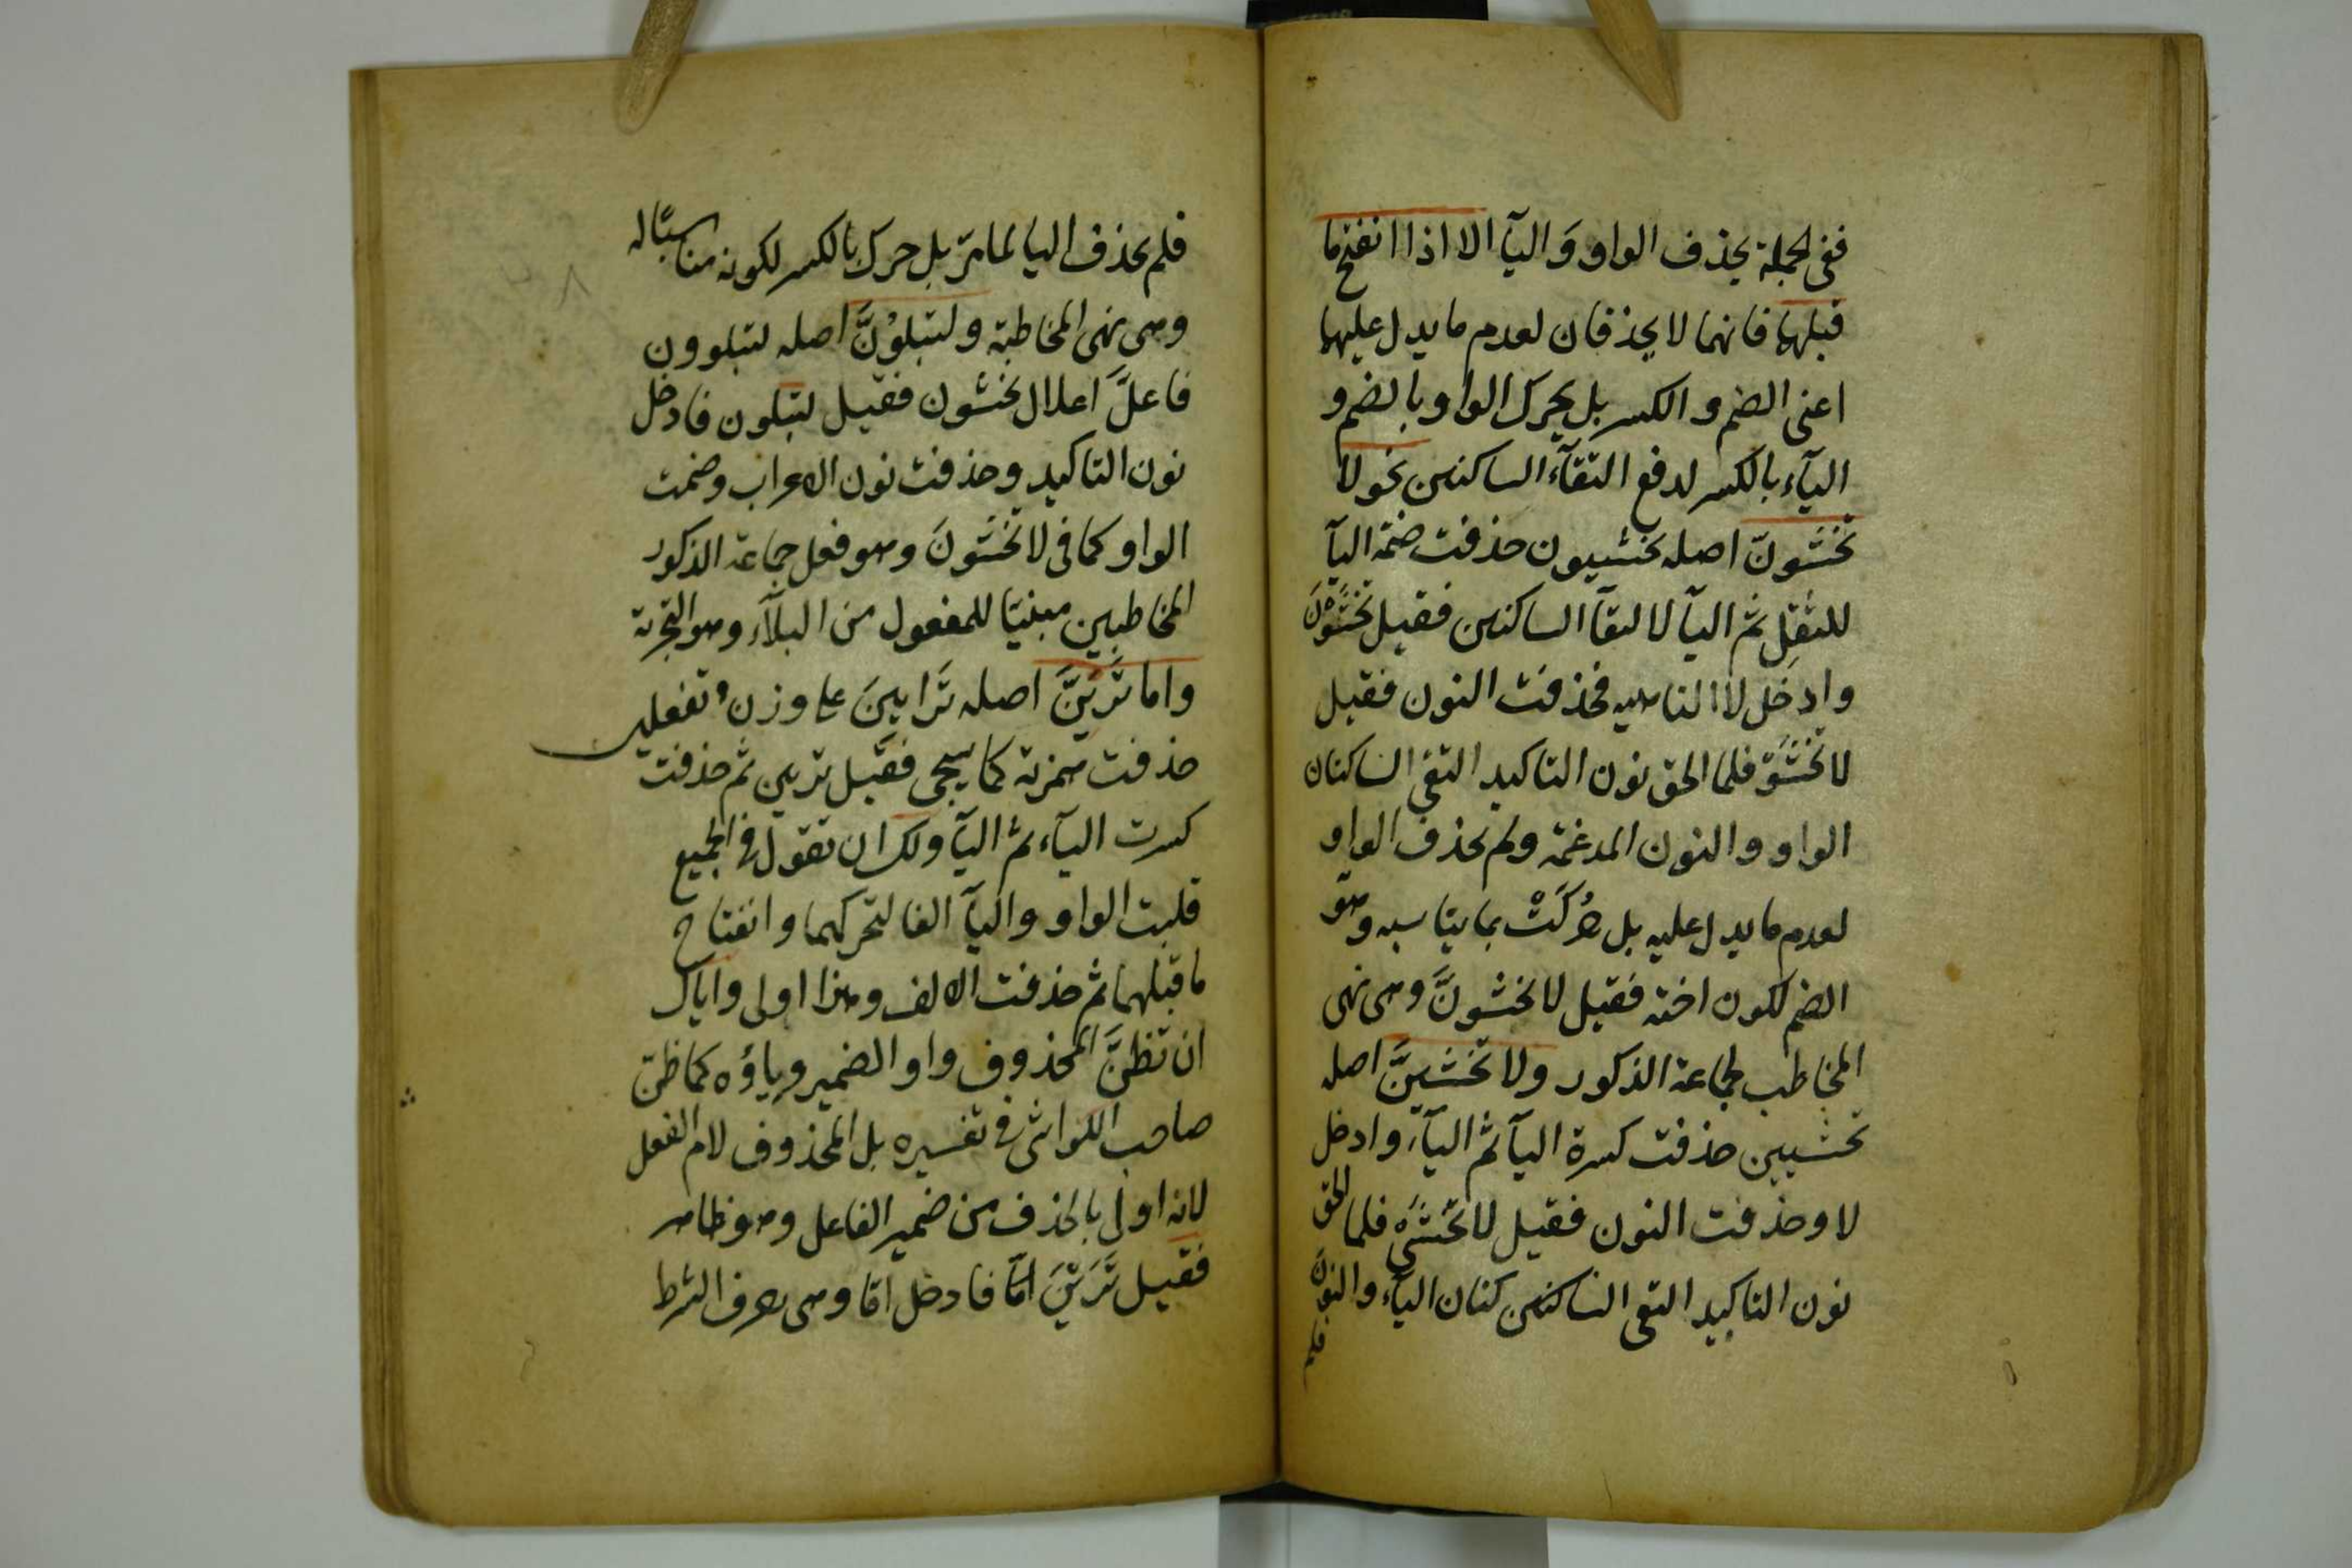 ففى الجملة يحذف الواو وَ اليآ الا اذا انفتح ما
قبلهما فانهما لا يحذفان لعدم ما يدل عليهما
اعنى الضم و الكسر بل يحرك الواو بالضم و
اليآء بالكسر لدفع التقآء الساكنين نحو لا
تخشَوُنّ اصله تخشيون حذفت ضمة اليآ
للثقل ثم اليآ لالتقآ الساكنين فقيل تخشَوْنَ
وادخل لا الناهيه فحذفت النون فقيل
لا تخشَوْ فلما الحق نون التاكيد التقى الساكنان
الواو والنون المدغمة ولم يحذف الواو
لعدم ما يدل عليه بل حُرِّكَتْ بما يناسبه وهو
الضم لكون اخته فقيل لا تخشونَّ وهى نهى
المخاطب لجماعة الذكور ولا تخشَيِنَّ اصله
تخشيين حذفت كسرة اليآ ثم اليآء وادخل
لا وحذفت النون فقيل لا تخشَىْ فلما الحق
نون التاكيد التقى الساكنين كنان اليآء والنونَ
فلم
فلم يحذف اليا لما مرّ بل حرك بالكسر لكونه مناسبًا له
وهى نهى المخاطبة ولتبلوُنَّ اصله لتبلوون
فاعلَّ اعلال تخشون فقيل لتبلون فادخل
نون التاكيد وحذفت نون الاعراب وضمت
الواو كما فى لا تخشَونَ وهو فعل جماعة الذكور
المخاطبين مبنيّا للمفعول من البلآء وهو التجربة
واما تَرَيِنَّ اصله تَرَايِينَ على وزن تفعلين
حذفت همزته كما سيجى فقيل تريين ثم حذفت
كسرت اليآء ثم اليآ ولك ان تقول فى الجميع
قلبت الواو واليآ الفا لتحركهما وانفتاح
ما قبلهما ثم حذفت الالف وهذا اولى واياك
ان تظنَّ المحذوف واو الضمير وياؤه كما ظن
صاحب الكواشى فى تفسيره بل المحذوف لام الفعل
لانه اولى بالحذف من ضمير الفاعل وهو ظاهر
فقيل تَرَيْنَ امّا فادخل امّا وهى حرف الشرط